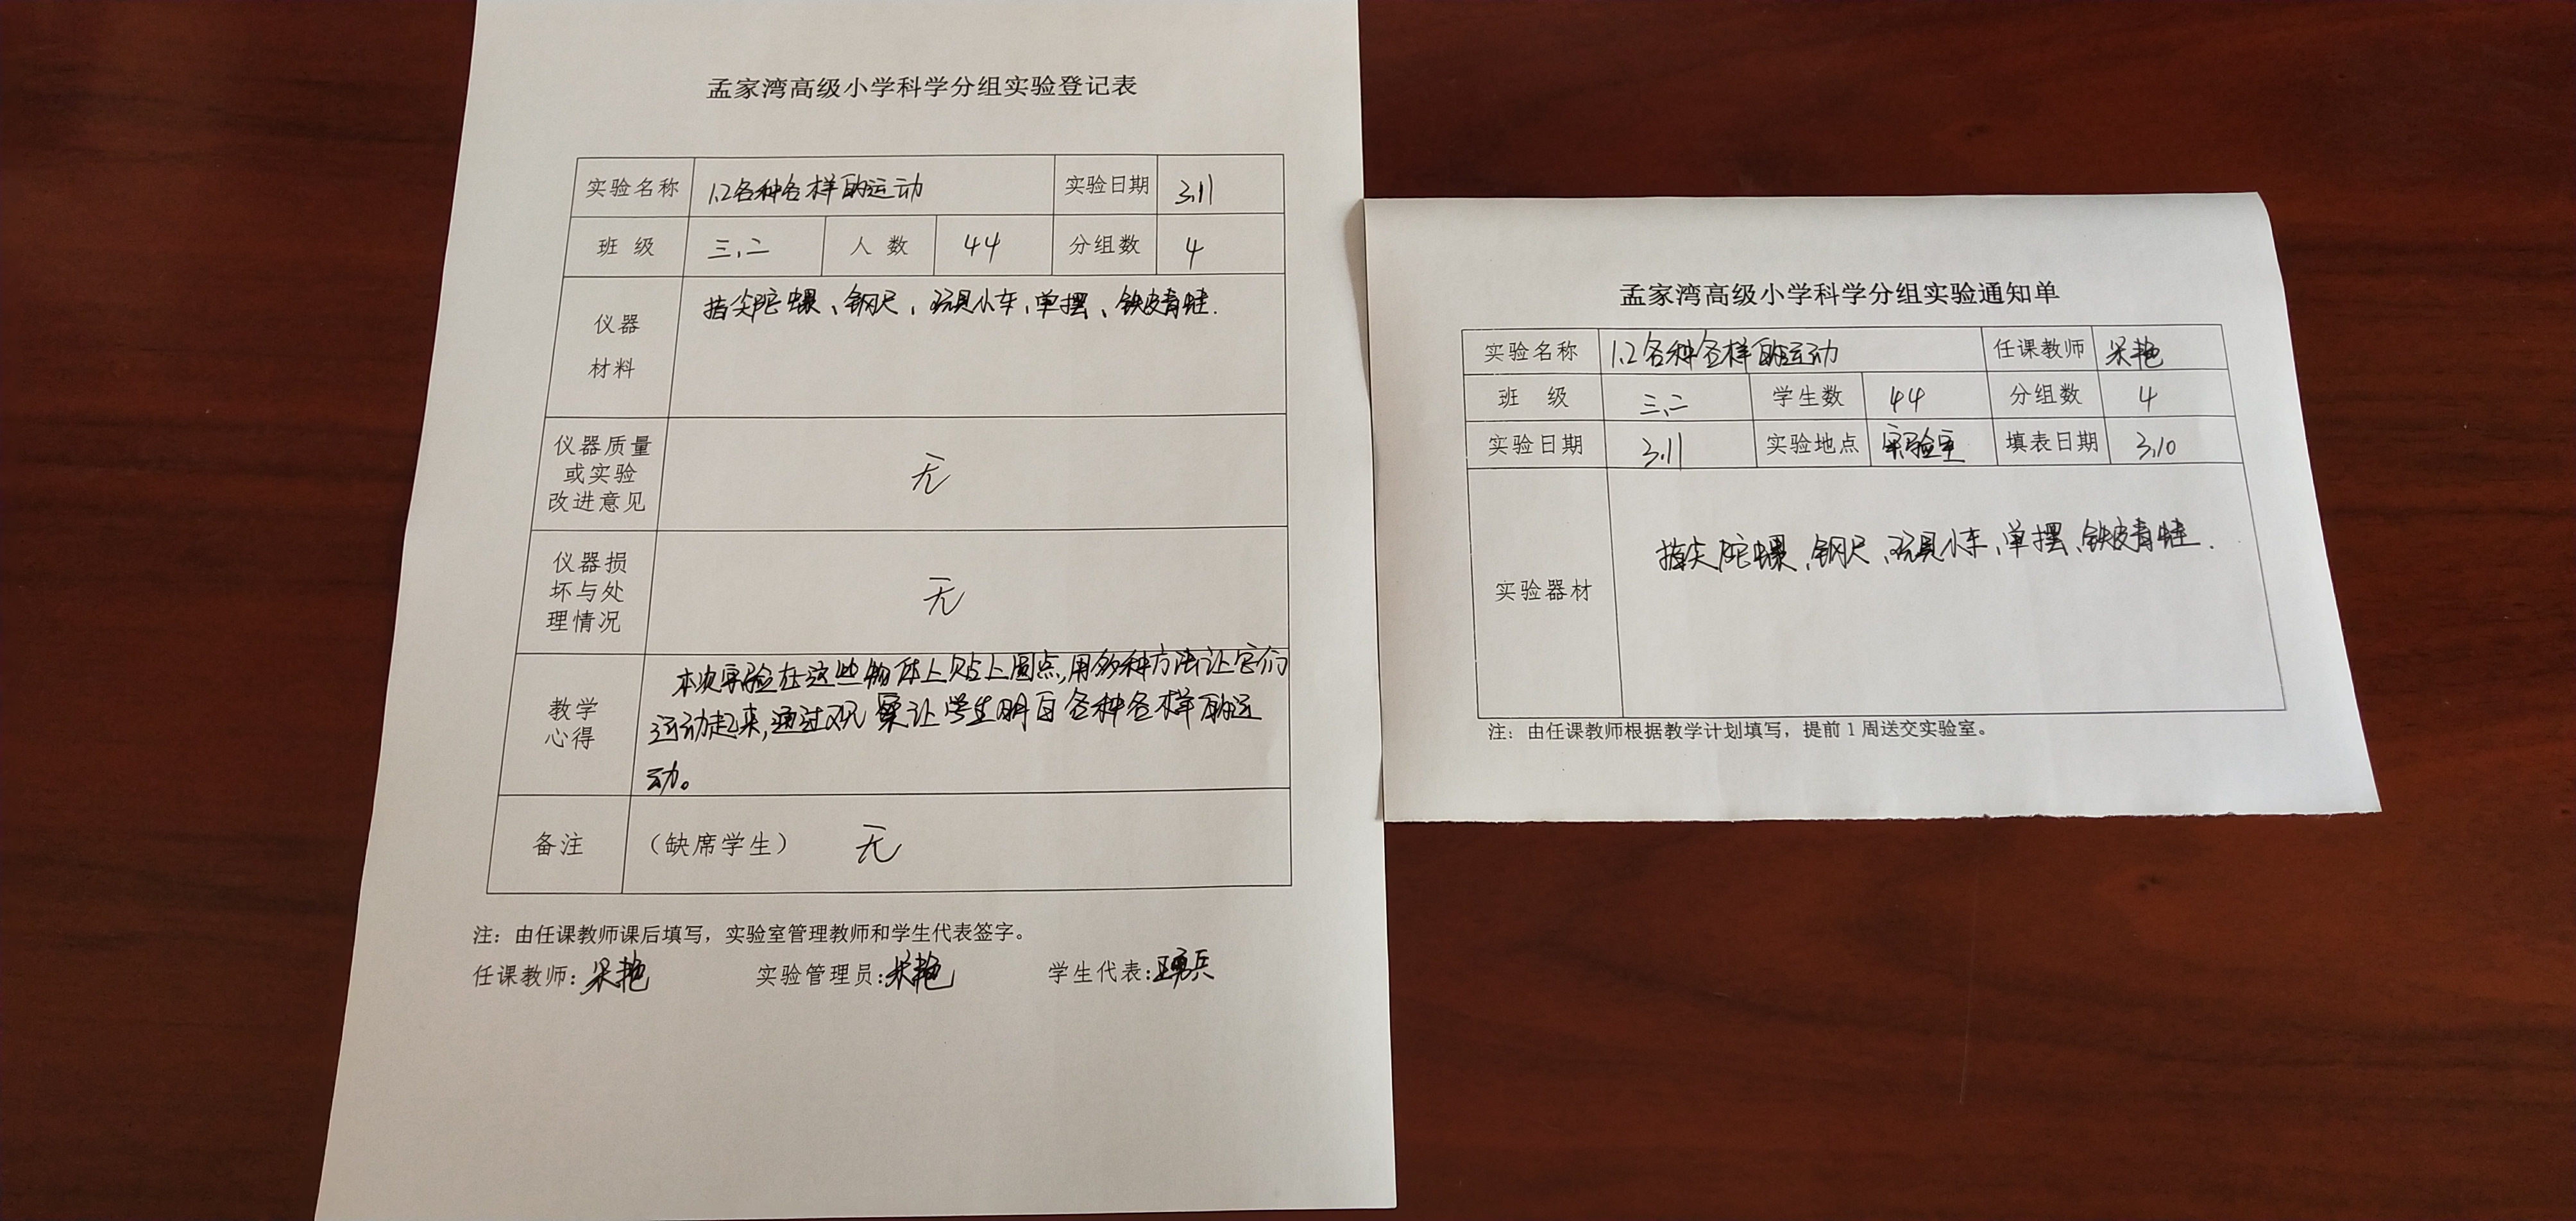 孟家湾高级小学科学分组实验登记表
实验名称 1.2各种各样的运动 实验日期 3.11
班 级 三.二 人 数 44 分组数 4
仪器
材料
指尖陀螺、钢尺、玩具小车、单摆、铁皮青蛙.
仪器质量
或实验
改进意见
无
仪器损
坏与处
理情况
无
教学
心得
本次实验在这些物体上贴上圆点,用多种方法让它们
运动起来,通过观察让学生明白各种各样的运
动。
备注 （缺席学生） 无
注：由任课教师课后填写，实验室管理教师和学生代表签字。
任课教师: 艳 实验管理员: 艳 学生代表: 兵
孟家湾高级小学科学分组实验通知单
实验名称 1.2各种各样的运动 任课教师 艳
班 级 三.二 学生数 44 分组数 4
实验日期 3.11 实验地点 实验室 填表日期 3.10
实验器材
指尖陀螺、钢尺、玩具小车、单摆、铁皮青蛙.
注：由任课教师根据教学计划填写，提前 1 周送交实验室。